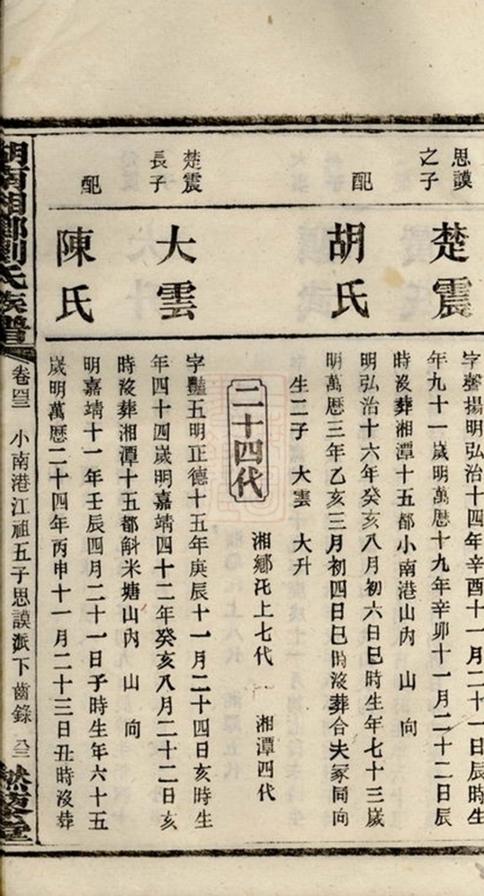 思謨
之子
楚震
字馨揚明弘治十四年辛酉十一月二十一日辰時生
年九十一歲明萬曆十九年辛卯十一月二十二日辰
時沒葬湘潭十五都小南港山內　山　向
配
胡氏
明弘治十六年癸亥八月初六日巳時生年七十三歲
明萬曆三年乙亥三月初四日巳時沒葬合夫冢同向
生二子　大雲　大升
二十四代
湘鄉氒上七代　湘潭四代
楚震
長子
大雲
字豔五明正德十五年庚辰十一月二十四日亥時生
年四十四歲明嘉靖四十二年癸亥八月二十二日亥
時沒葬湘潭十五都斛米塘山內　山　向
配
陳氏
明嘉靖十一年壬辰四月二十一日子時生年六十五
歲明萬曆二十四年丙申十一月二十三日丑時沒葬
湖南湘鄉劉氏族譜
卷四三
小南港江祖五子思謨派下齒錄